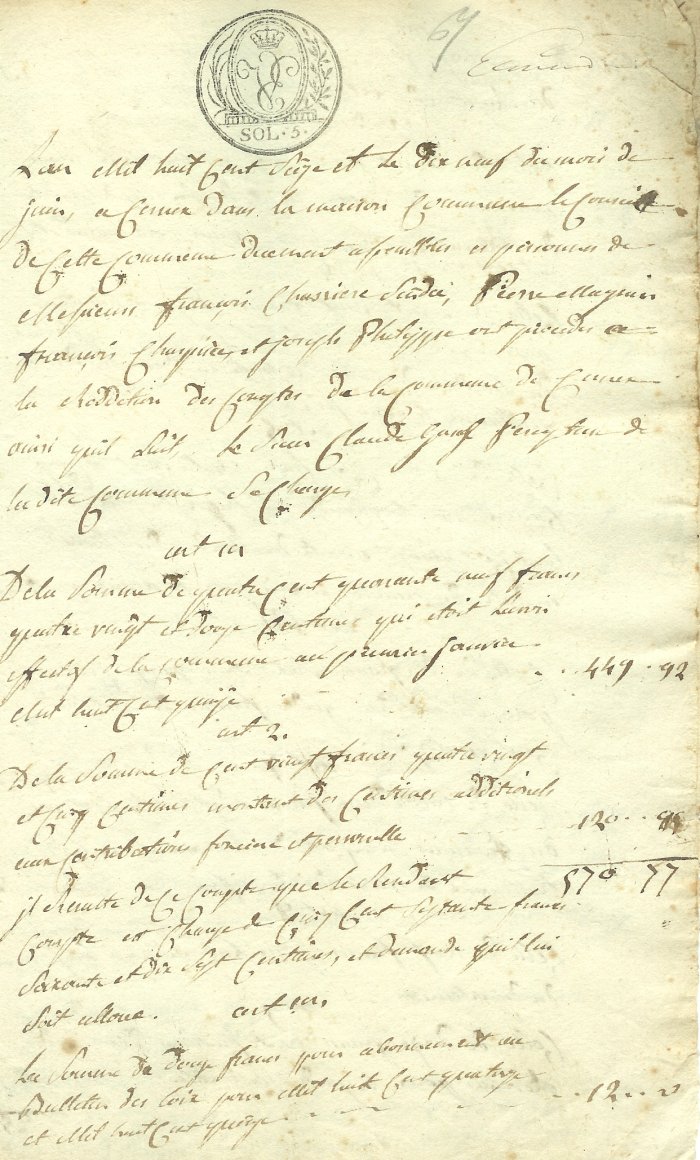 SOL. 5.
67
L'an Mil huit Cent Seize et Le dix neuf du mois de
juin, a Cernex dans la maison Commune le Conseil
de Cette Commune duement assemblés es personnes de
Messieurs françois Charriere Sindic, Pierre Magnin
françois Chapuis, et joseph Philippe ont procédés a
la Reddition des Comptes de la Commune de Cernex
ainsi quil Suit, Le Sieur Claude de
La dite Commune Se Charge
art 1er
De la Somme de quatre Cent quarante neuf francs
quatre vingt et douze Centimes qui etoit L'avoir
effectif de la Commune au premier janvier
Mil huit Cent quinze 449 . 92
art 2.
De la Somme de Cent vingt francs quatre vingt
et Cinq Centimes montant des Centimes additionels
aux Contributions fonciere et personnelle 120 .. 85
570 77
jl Resulte de Ce Compte que le Rendant
Compte est Chargé de Cinq Cent Septante francs
Soixante et dix Sept Centimes, et demande qu'il lui
Soit alloué. art 1er.
La Somme de douze francs pour abonnement au
Bulletin des Loix pour Mil huit Cent quatorze
et Mil huit Cent quinze 12 ..